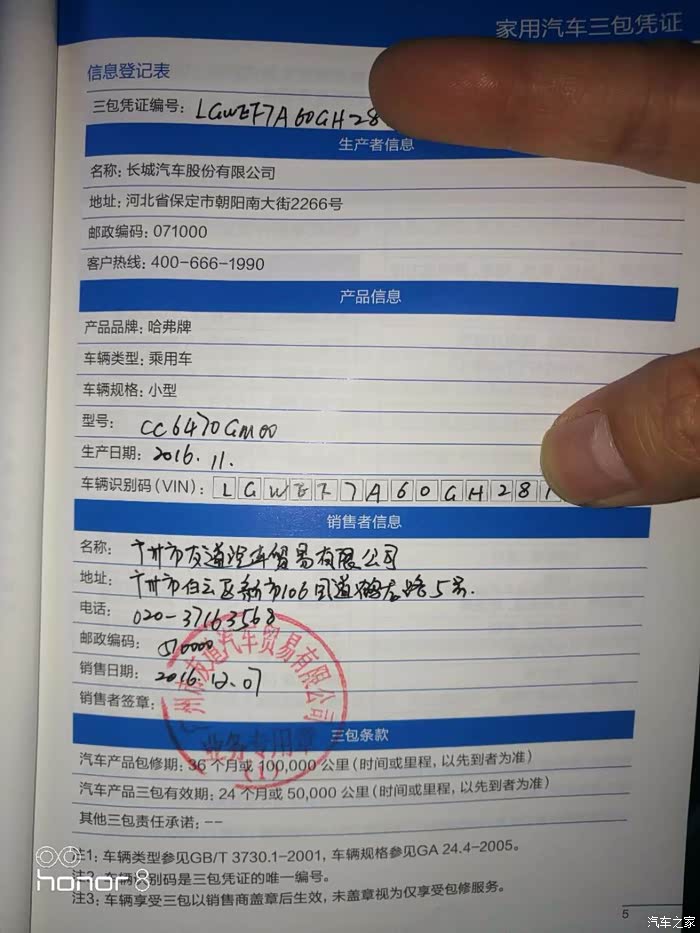 家用汽车三包凭证
信息登记表
三包凭证编号: LGWEF7A60GH28
生产者信息
名称: 长城汽车股份有限公司
地址: 河北省保定市朝阳南大街2266号
邮政编码: 071000
客户热线: 400-666-1990
产品信息
产品品牌: 哈弗牌
车辆类型: 乘用车
车辆规格: 小型
型号: CC6470GM00
生产日期: 2016.11.
车辆识别码(VIN): LGWEF7A60GH281
销售者信息
名称: 广州市友道汽车贸易有限公司
地址: 广州市白云区新市106国道鹤龙路5号.
电话: 020-37163568
邮政编码: 510000
销售日期: 2016.12.07
销售者签章:
广州市友道汽车贸易有限公司
业务专用章
(1)
三包条款
汽车产品包修期: 36 个月或 100,000 公里 (时间或里程, 以先到者为准)
汽车产品三包有效期: 24 个月或 50,000 公里 (时间或里程, 以先到者为准)
其他三包责任承诺: --
注1: 车辆类型参见GB/T 3730.1-2001, 车辆规格参见GA 24.4-2005。
注2: 车辆识别码是三包凭证的唯一编号。
注3: 车辆享受三包以销售商盖章后生效, 未盖章视为仅享受包修服务。
5
honor 8
汽车之家